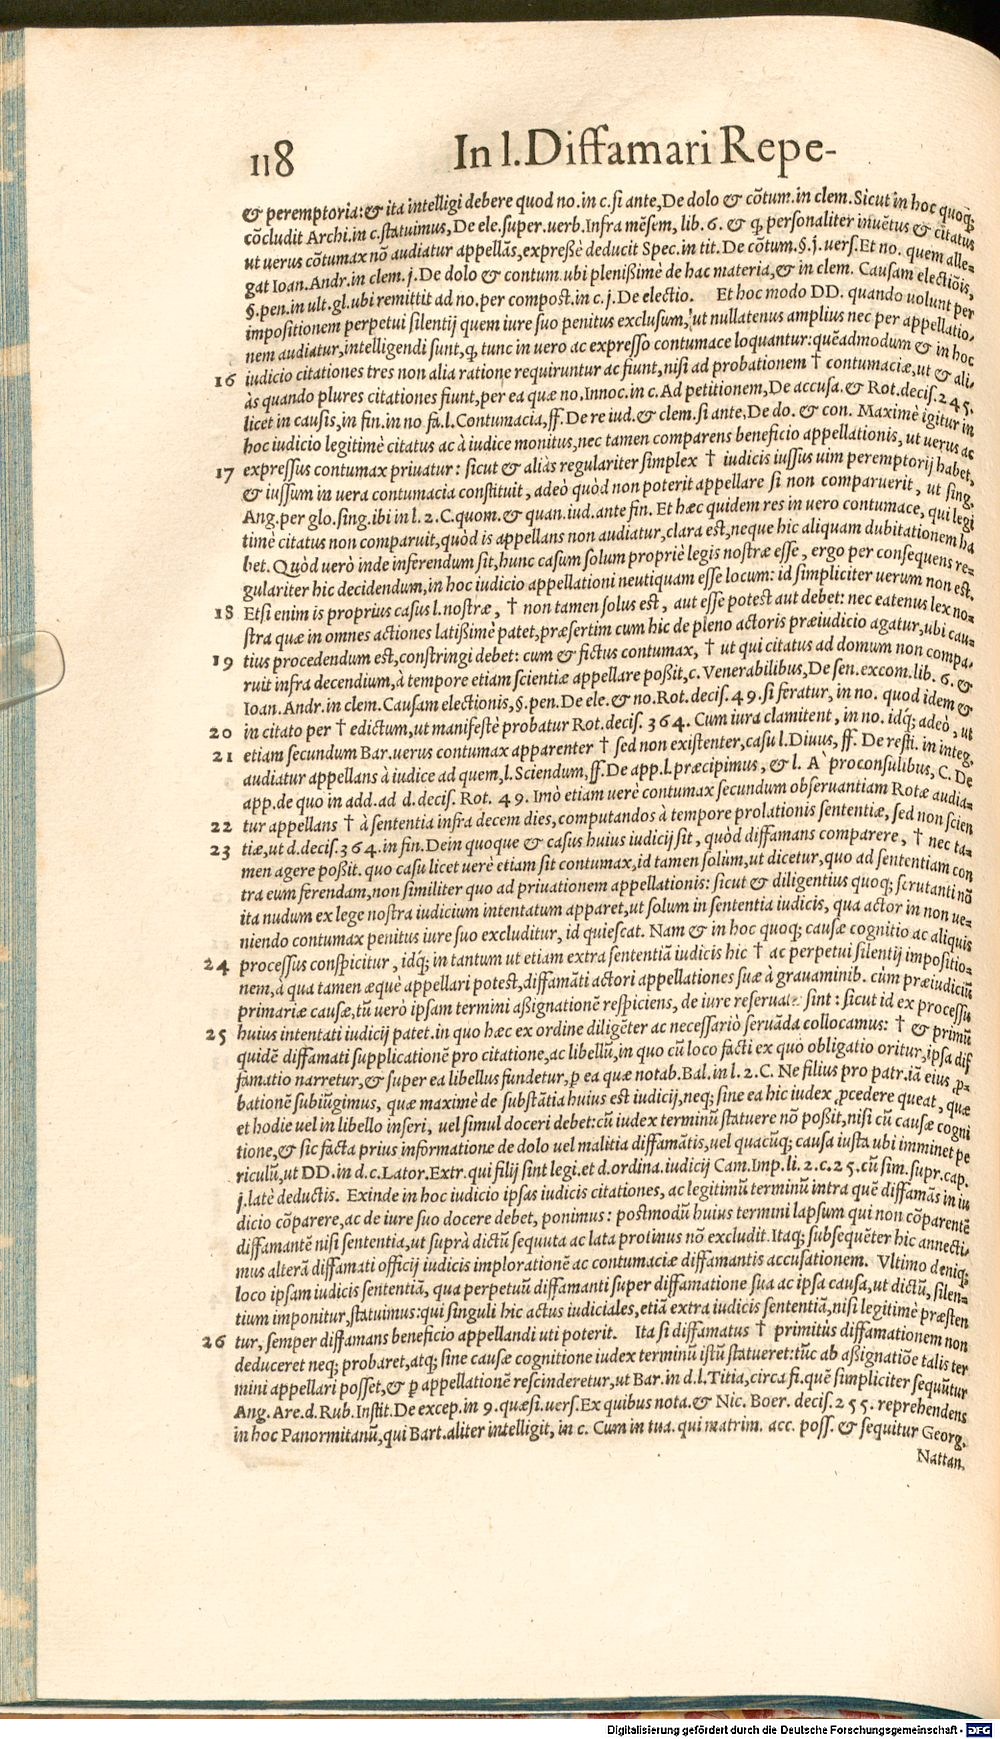 118 In l. Diffamari Repe-
& peremptoria: & ita intelligi debere quod no. in c. si ante, De dolo & cōtum. in clem. Sicut in hoc quoq;
cōcludit Archi. in c. statuimus, De ele. super. uerb. Infra mēsem, lib. 6. & q̨ personaliter inuētus & citatus
ut uerus cōtumax nō audiatur appellās, expreßè deducit Spec. in tit. De cōtum. §. j. uers. Et no. quem alle-
gat Ioan. Andr. in clem. j. De dolo & contum. ubi plenißimè de hac materia, & in clem. Causam electiōis,
§. pen. in ult. gl. ubi remittit ad no. per compost. in c. j. De electio. Et hoc modo DD. quando uolunt per
impositionem perpetui silentij quem iure suo penitus exclusum, ut nullatenus amplius nec per appellatio-
nem audiatur, intelligendi sunt, q̨ tunc in uero ac expresso contumace loquantur: quēadmodum & in hoc
16 iudicio citationes tres non alia ratione requiruntur ac fiunt, nisi ad probationem † contumaciæ, ut & ali-
às quando plures citationes fiunt, per ea quæ no. Innoc. in c. Ad petitionem, De accusa. & Rot. decis. 245.
licet in causis, in fin. in no fa. l. Contumacia, ff. De re iud. & clem. si ante, De do. & con. Maximè igitur in
hoc iudicio legitimè citatus ac à iudice monitus, nec tamen comparens beneficio appellationis, ut uerus ac
17 expressus contumax priuatur: sicut & aliàs regulariter simplex † iudicis iussus uim peremptorij habet,
& iussum in uera contumacia constituit, adeò quòd non poterit appellare si non comparuerit, ut sing.
Ang. per glo. sing. ibi in l. 2. C. quom. & quan. iud. ante fin. Et hæc quidem res in uero contumace, qui legi
timè citatus non comparuit, quòd is appellans non audiatur, clara est, neque hic aliquam dubitationem ha
bet. Quòd uerò inde inferendum sit, hunc casum solum propriè legis nostræ esse, ergo per consequens re-
gulariter hic decidendum, in hoc iudicio appellationi neutiquam esse locum: id simpliciter uerum non est.
18 Etsi enim is proprius casus l. nostræ, † non tamen solus est, aut esse potest aut debet: nec eatenus lex no-
stra quæ in omnes actiones latißimè patet, præsertim cum hic de pleno actoris præiudicio agatur, ubi cau-
19 tius procedendum est, constringi debet: cum & fictus contumax, † ut qui citatus ad domum non compa-
ruit infra decendium, à tempore etiam scientiæ appellare poßit, c. Venerabilibus, De sen. excom. lib. 6. &
Ioan. Andr. in clem. Causam electionis, §. pen. De ele. & no. Rot. decis. 49. si feratur, in no. quod idem &
20 in citato per † edictum, ut manifestè probatur Rot. decis. 364. Cum iura clamitent, in no. idq́; adeò, ut
21 etiam secundum Bar. uerus contumax apparenter † sed non existenter, casu l. Diuus, ff. De resti. in integ.
audiatur appellans à iudice ad quem, l. Sciendum, ff. De app. l. præcipimus, & l. A` proconsulibus, C. De
app. de quo in add. ad d. decis. Rot. 49. Imò etiam uerè contumax secundum obseruantiam Rotæ audia-
22 tur appellans † à sententia infra decem dies, computandos à tempore prolationis sententiæ, sed non scien
23 tiæ, ut d. decis. 364. in fin. Dein quoque & casus huius iudicij sit, quòd diffamans comparere, † nec ta-
men agere poßit. quo casu licet uerè etiam sit contumax, id tamen solùm, ut dicetur, quo ad sententiam con
tra eum ferendam, non similiter quo ad priuationem appellationis: sicut & diligentius quoq; scrutanti nō
ita nudum ex lege nostra iudicium intentatum apparet, ut solum in sententia iudicis, qua actor in non ue-
niendo contumax penitus iure suo excluditur, id quiescat. Nam & in hoc quoq; causæ cognitio ac aliquis
24 processus conspicitur, idq́; in tantum ut etiam extra sententiā iudicis hic † ac perpetui silentij impositio-
nem, à qua tamen æquè appellari potest, diffamāti actori appellationes suæ à grauaminib. cùm præiudiciū
primariæ causæ, tū uerò ipsam termini aßignationē respiciens, de iure sint: sicut id ex processu
25 huius intentati iudicij patet. in quo hæc ex ordine diligēter ac necessariò seruāda collocamus: † & primū
quidē diffamati supplicationē pro citatione, ac libellū, in quo cū loco facti ex quo obligatio oritur, ipsa dif
famatio narretur, & super ea libellus fundetur, ꝑ ea quæ notab. Bal. in l. 2. C. Ne filius pro patr. iā eius ꝓ-
bationē subiūgimus, quæ maximè de substātia huius est iudicij, neq; sine ea hic iudex ꝓcedere queat, quæ
et hodie uel in libello inseri, uel simul doceri debet: cū iudex terminū statuere nō poßit, nisi cū causæ cogni
tione, & sic facta prius informatione de dolo uel malitia diffamātis, uel quacūq; causa iusta ubi imminet pe
riculū, ut DD. in d. c. Lator. Extr. qui filij sint legi. et d. ordina. iudicij Cam. Imp. li. 2. c. 25. cū sim. supr. cap.
j. latè deductis. Exinde in hoc iudicio ipsas iudicis citationes, ac legitimū terminū intra quē diffamās in iu
dicio cōparere, ac de iure suo docere debet, ponimus: postmodū huius termini lapsum qui non cōparentē
diffamantē nisi sententia, ut suprà dictū sequuta ac lata protinus nō excludit. Itaq; subsequēter hic annecti-
mus alterā diffamati officij iudicis implorationē ac contumaciæ diffamantis accusationem. Vltimo deniq;
loco ipsam iudicis sententiā, qua perpetuū diffamanti super diffamatione sua ac ipsa causa, ut dictū, silen-
tium imponitur, statuimus: qui singuli hic actus iudiciales, etiā extra iudicis sententiā, nisi legitimè præsten
26 tur, semper diffamans beneficio appellandi uti poterit. Ita si diffamatus † primitùs diffamationem non
deduceret neq; probaret, atq; sine causæ cognitione iudex terminū istū statueret: tūc ab aßignatiōe talis ter
mini appellari posset, & ꝑ appellationē rescinderetur, ut Bar. in d. l. Titia, circa fi. quē simpliciter sequūtur
Ang. Are. d. Rub. Instit. De excep. in 9. quæsi. uers. Ex quibus nota. & Nic. Boer. decis. 255. reprehendens
in hoc Panormitanū, qui Bart. aliter intelligit, in c. Cum in tua. qui matrim. acc. poss. & sequitur Georg.
Nattan.
Digitalisierung gefördert durch die Deutsche Forschungsgemeinschaft - DFG